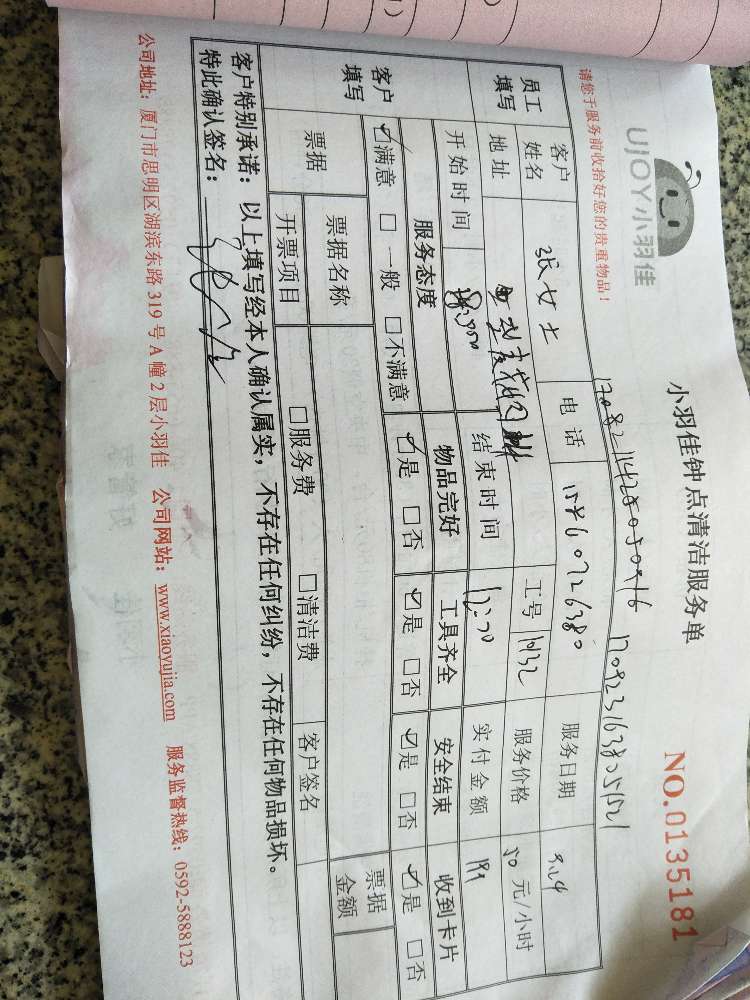 UJOY小羽佳
小羽佳钟点清洁服务单
NO.0135181
请您于服务前收拾好您的贵重物品!
员工填写 客户姓名 张女士 电话 工号 服务日期
地址 服务价格 50 元/小时
开始时间 结束时间 实付金额
客户填写 服务态度 物品完好 工具齐全 安全结束 收到卡片
☑满意 □一般 □不满意 ☑是 □否 ☑是 □否 ☑是 □否 ☑是 □否
票据 票据名称 票据金额
开票项目 □服务费 □清洁费 客户签名
客户特别承诺:以上填写经本人确认属实,不存在任何纠纷,不存在任何物品损坏。
特此确认签名:
公司地址:厦门市思明区湖滨东路 319 号 A 幢 2 层小羽佳 公司网站:www.xiaoyujia.com 服务监督热线:0592-5888123